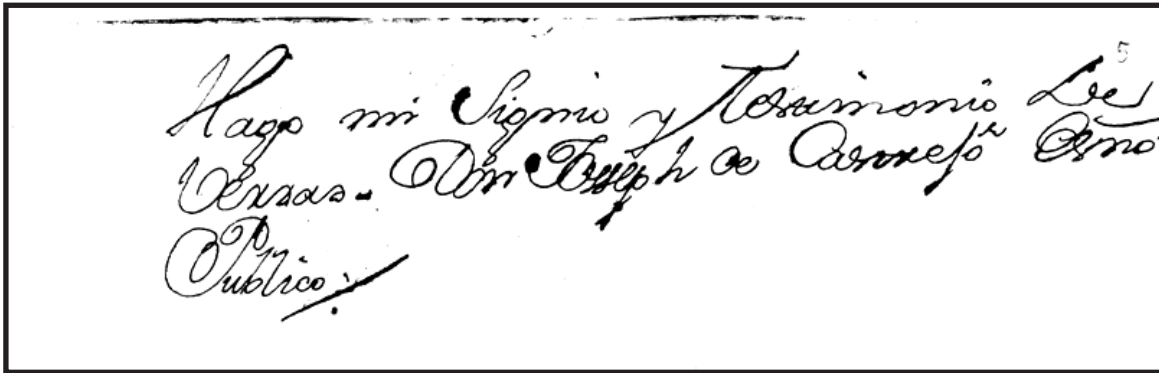 5
Hago mi Signio y Testimonio De
Verdad- Don Joseph de Esno
Publico